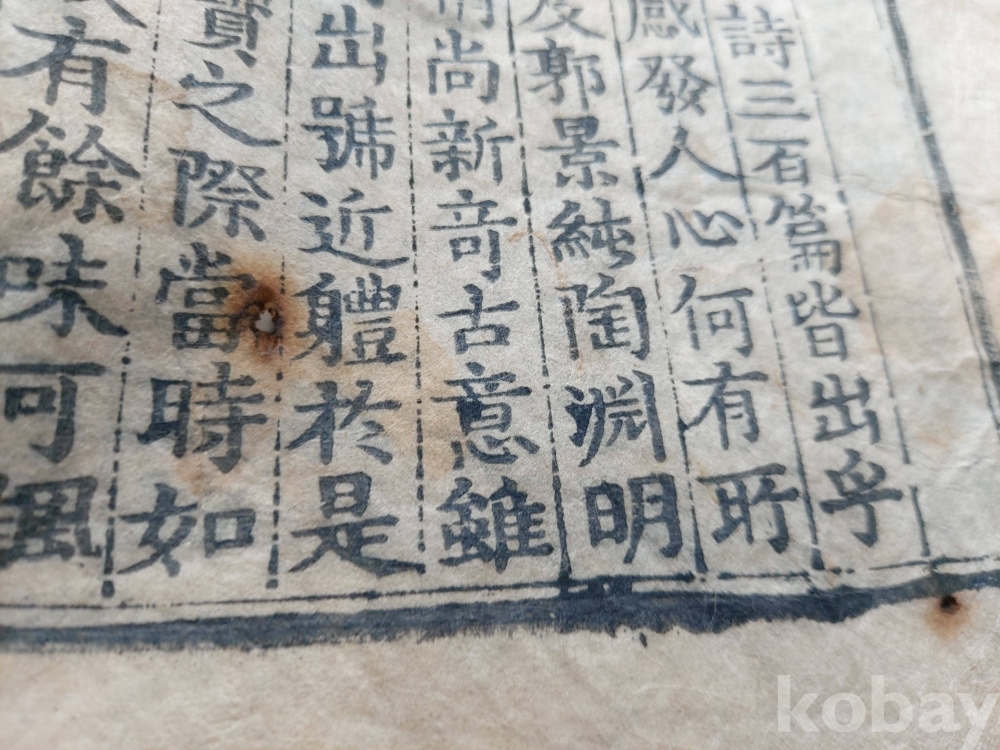 詩三百篇皆出乎
感發人心何有所
郭景純陶淵明
尚新竒古意雖
出號近軆於是
之際當時如
有餘味可諷
kobay